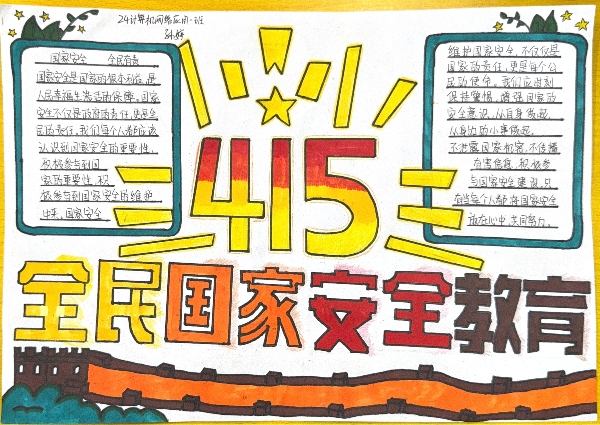 24计算机网络应用一班
国家安全 全民有责
国家安全是国家的根本所在，是
人民幸福生活的保障。国家
安全不仅是政府的责任，更是全
民的责任，我们每个人都应该
认识到国家安全的重要性，
积极参与到国
家的重要性，积
极参与到国家安全的维护
中来，国家安全
维护国家安全，不仅仅是
国家的责任，更是每个公
民的使命，我们应时刻
保持警惕，增强国家的
安全意识，从自身做起，
从身边的小事做起，
不泄露国家机密，不传播
有害信息，积极参
与国家安全建设，只
有当每个人都将国家安全
放在心中，共同努力，
415
全民国家安全教育